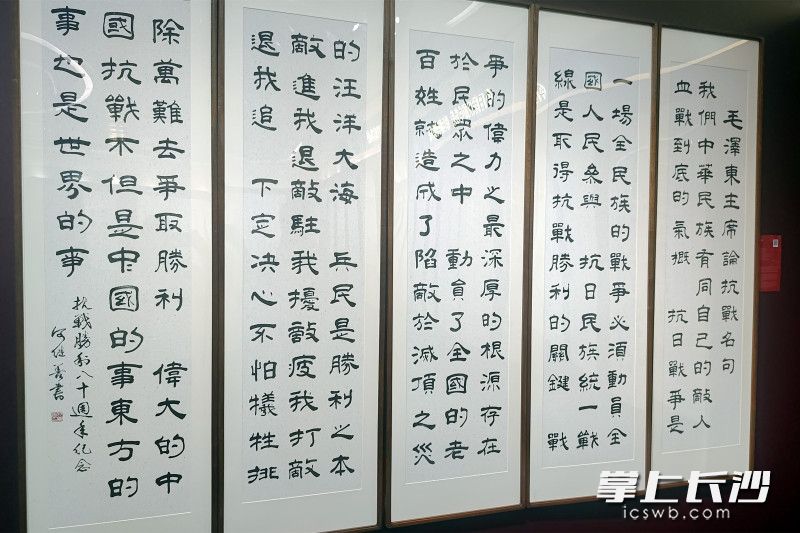 毛澤東主席論抗戰名句
我們中華民族有同自己的敵人
血戰到底的氣概 抗日戰爭是
一場全民族的戰爭必須動員全
國人民參與 抗日民族統一戰
線是取得抗戰勝利的關鍵 戰
爭的偉力之最深厚的根源存在
於民眾之中 動員了全國的老
百姓就造成了陷敵於滅頂之災
的汪洋大海 兵民是勝利之本
敵進我退敵駐我擾敵疲我打敵
退我追 下定决心不怕犧牲排
除萬難去爭取勝利 偉大的中
國抗戰不但是中國的事東方的
事也是世界的事
抗戰勝利八十週年纪念
何继善書
掌上长沙
icswb.com